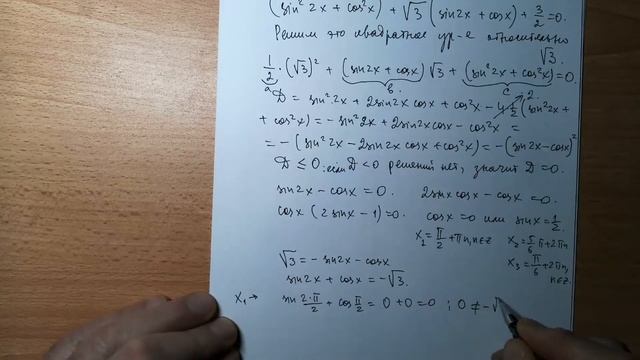 (sin²2x + cos²x) + √3 (sin2x + cosx) + 3/2 = 0.
Решим это квадратное ур-е относительно
√3.
1/2 · (√3)² + (sin2x + cosx) √3 + (sin²2x + cos²x) = 0.
a b c
D = sin²2x + 2sin2x cosx + cos²x - 4·1/2 (sin²2x + 2.
+ cos²x) = - sin²2x + 2sin2x cosx - cos²x =
= - (sin²2x - 2sin2x cosx + cos²x) = - (sin2x - cosx)²
D ≤ 0; если D < 0 решений нет, значит D = 0.
sin2x - cosx = 0. 2sinx cosx - cosx = 0.
cosx (2sinx - 1) = 0. cosx = 0 или sinx = 1/2.
x₁ = π/2 + πn, n∈Z x₂ = 5/6 π + 2πn
x₃ = π/6 + 2πn, n∈Z.
√3 = - sin2x - cosx
sin2x + cosx = -√3.
x₁ → sin 2·π/2 + cos π/2 = 0 + 0 = 0 ; 0 ≠ -√